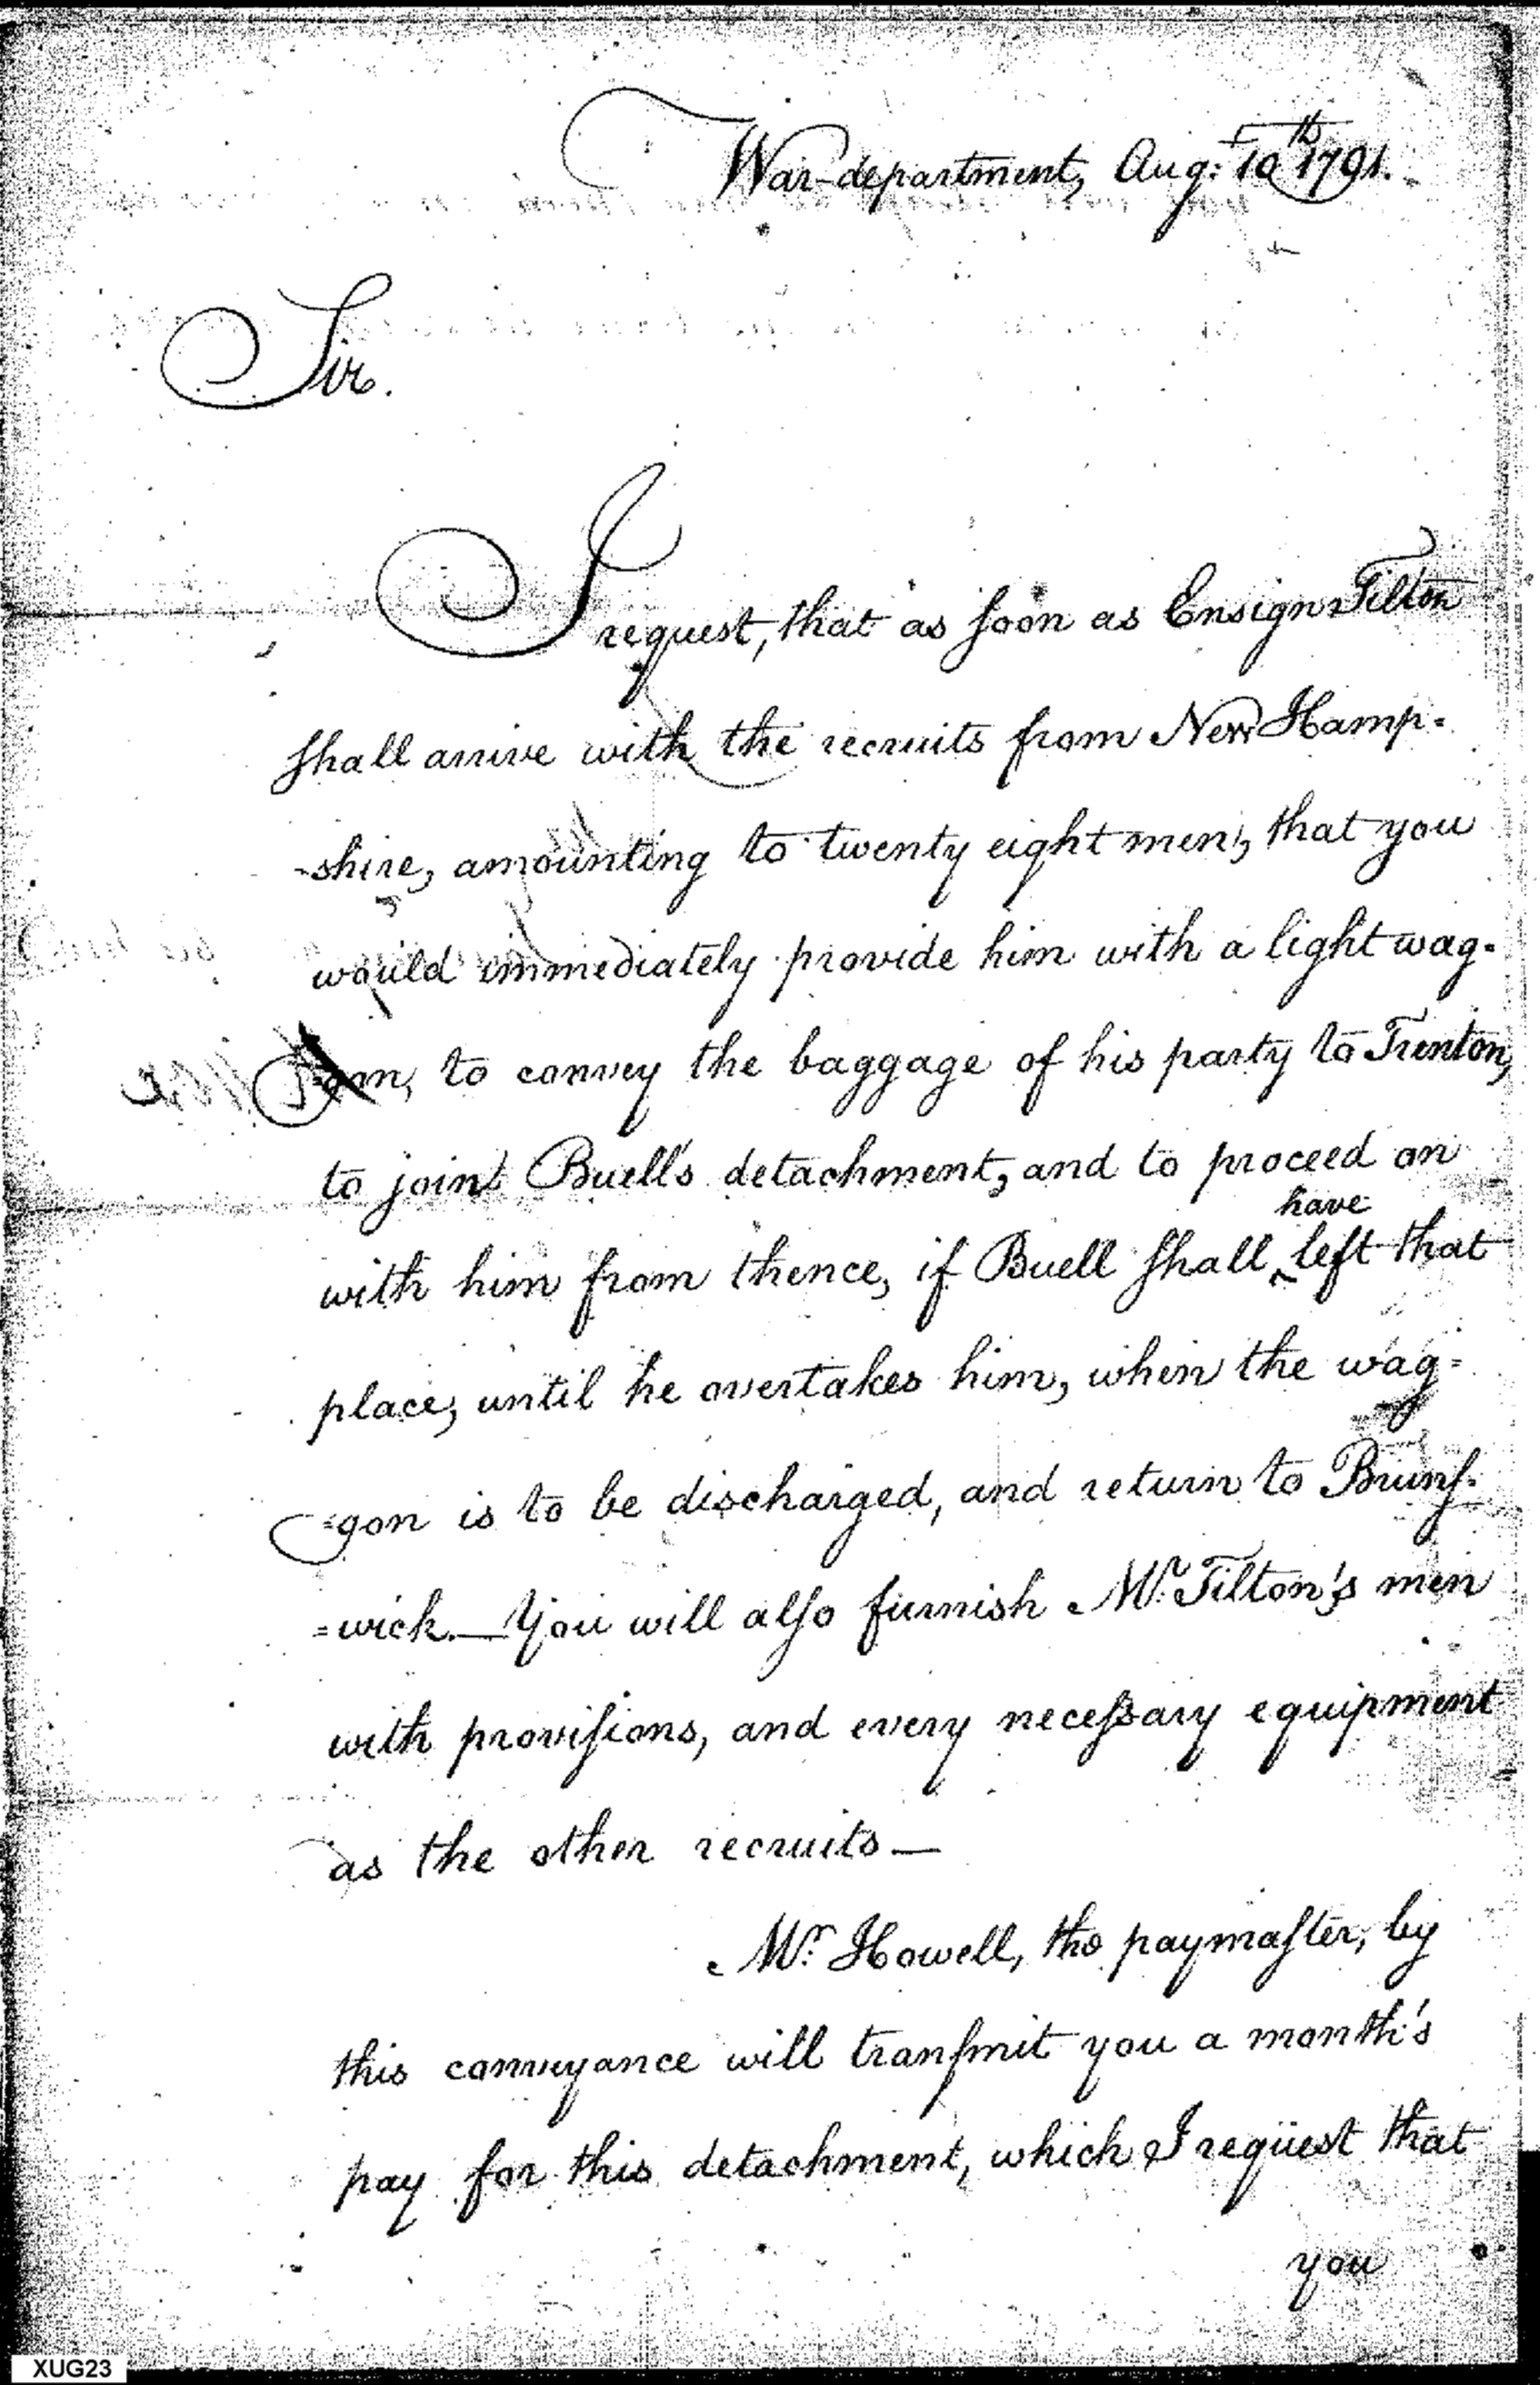 War-department, Aug: 10th 1791.
Sir.
I request, that as soon as Ensign Tilton
shall arrive with the recruits from New Hamp-
-shire, amounting to twenty eight men, that you
would immediately provide him with a light wag-
=gon, to convey the baggage of his party to Trenton,
to join Buell's detachment, and to proceed on
have
with him from thence, if Buell shall ‸ left that
place, until he overtakes him, when the wag=
=gon is to be discharged, and return to Bruns-
=wick.—You will also furnish Mr. Tilton's men
with provisions, and every necessary equipment
as the other recruits—
Mr. Howell, the paymaster, by
this conveyance will transmit you a month's
pay for this detachment, which I request that
you
XUG23